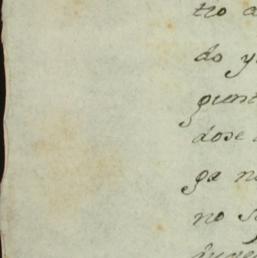 tro a
do y
quent
dose
ga n
no s